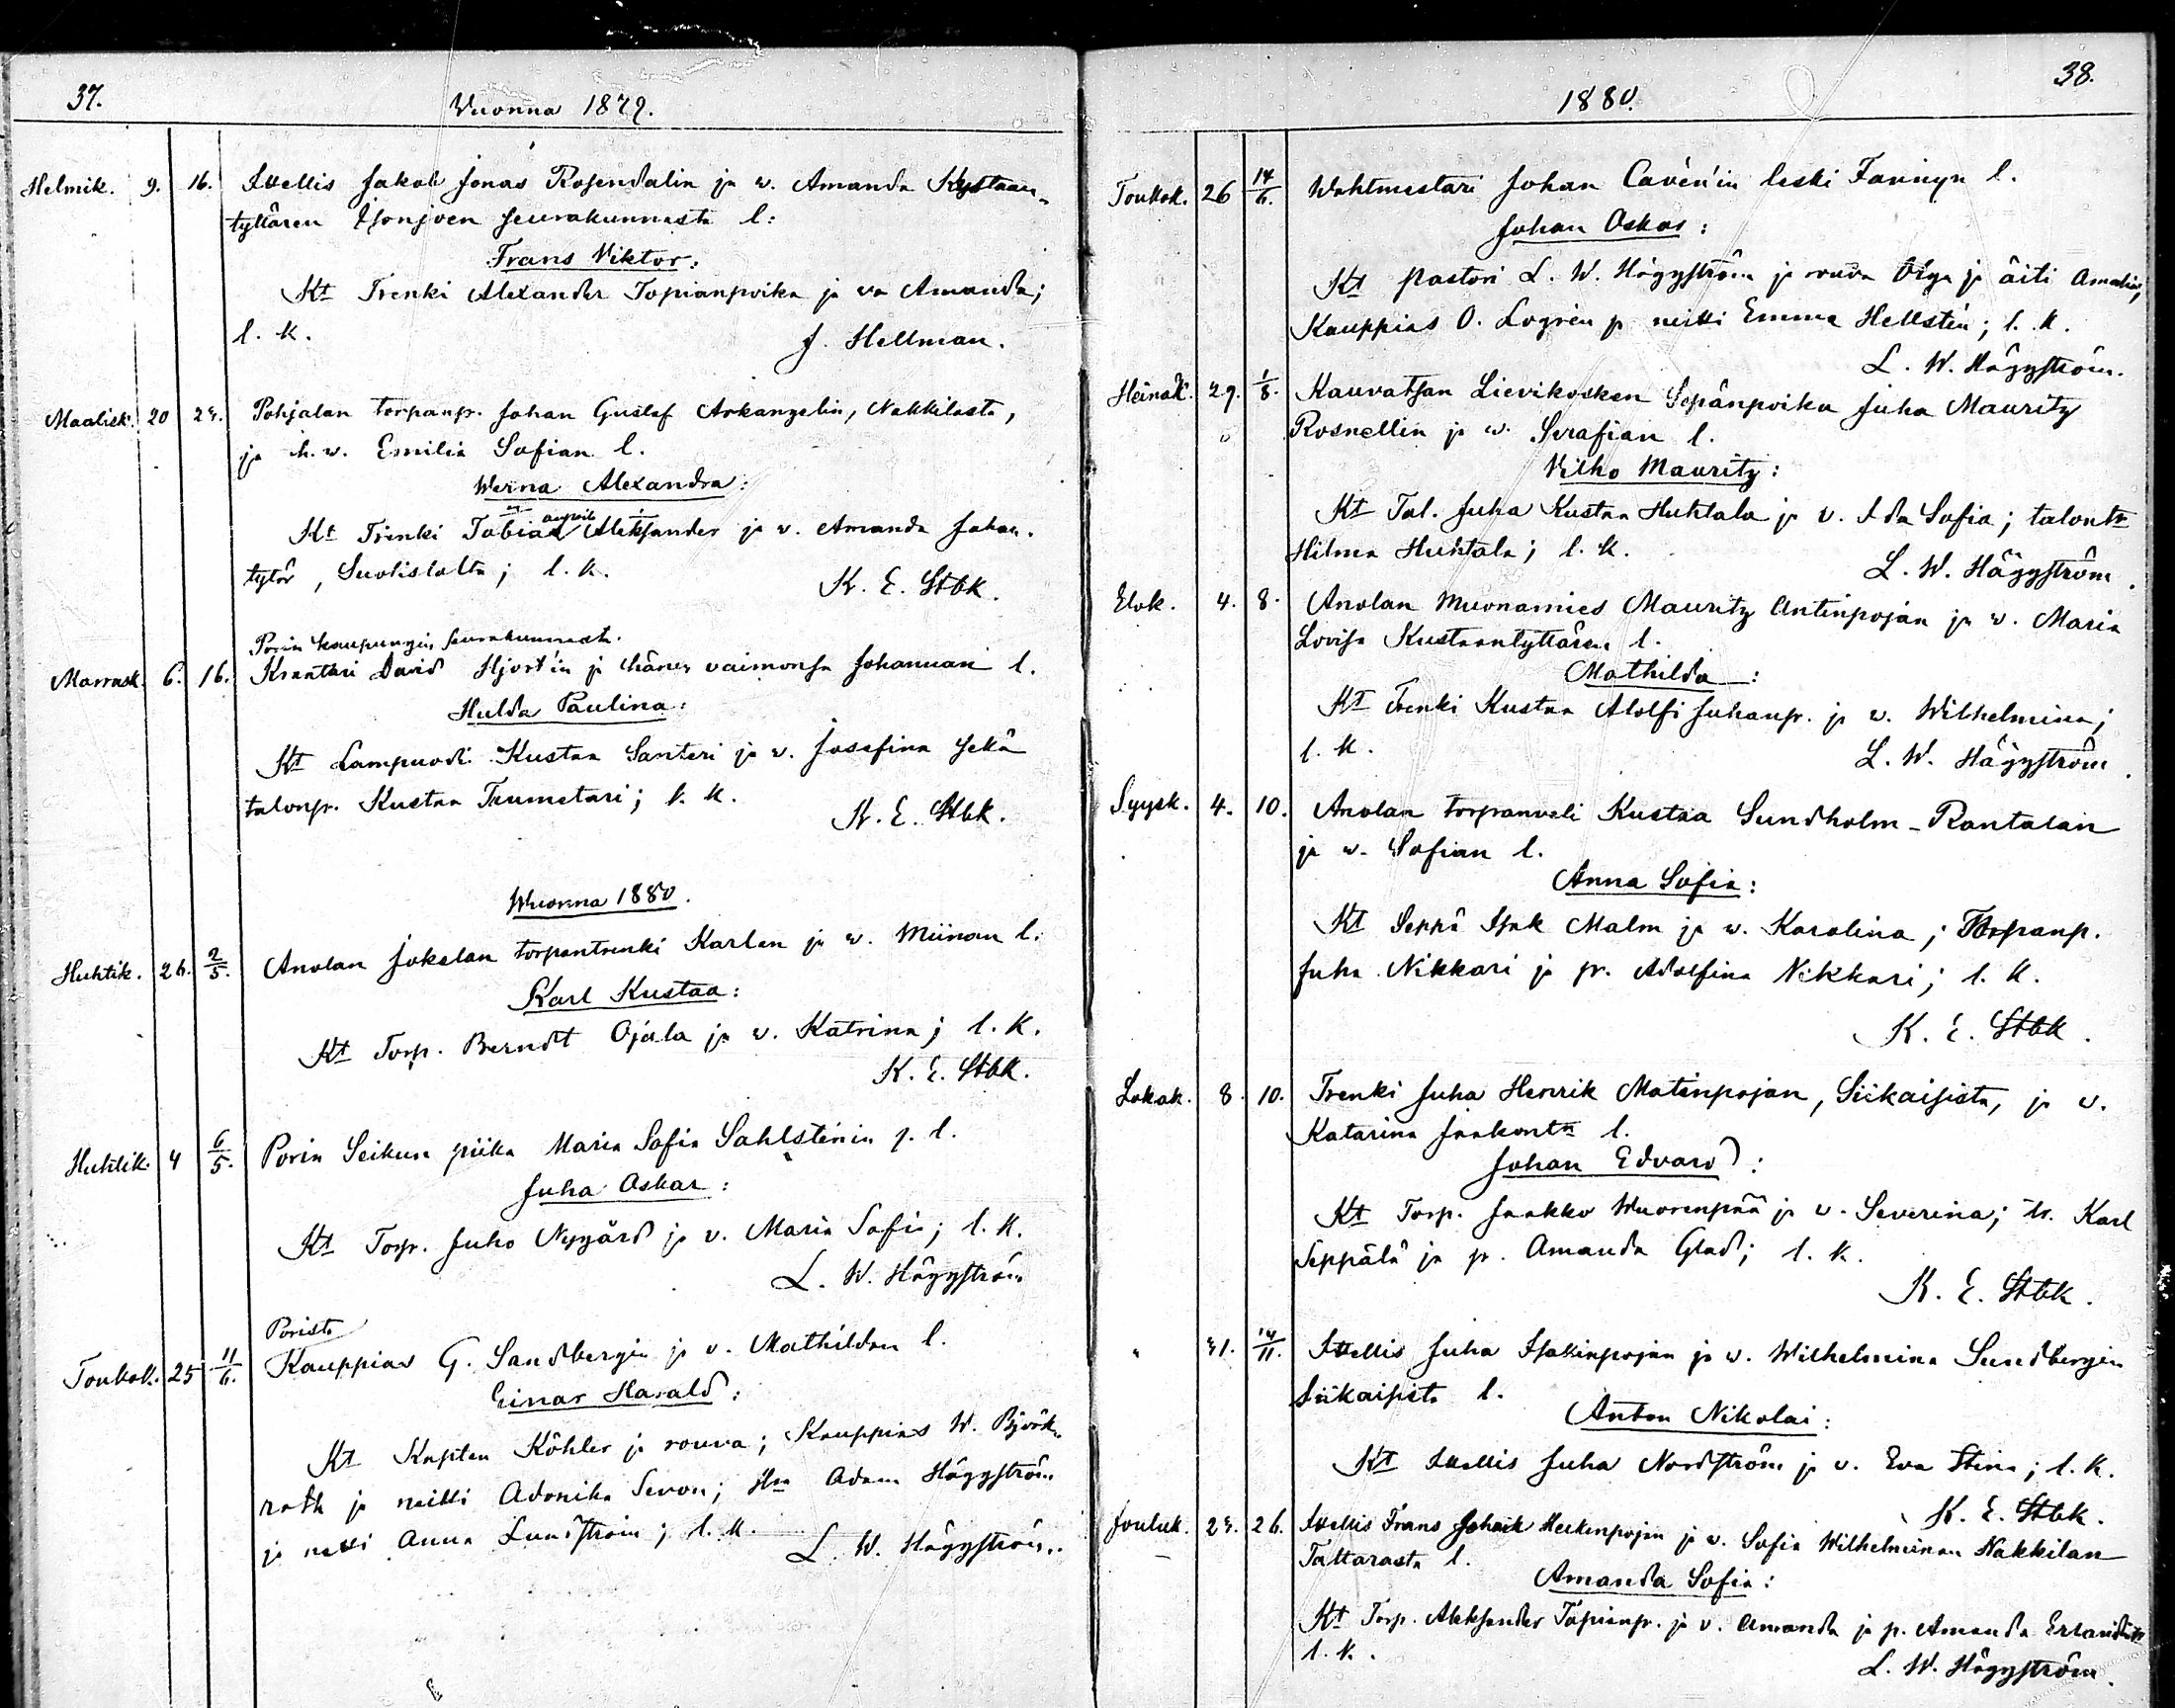 37.
Vuonna 1879.
Helmik. 9. 16. Itellis Jakob Jonas Rosendalin ja w. Amanda Kustaan-
tyttären seurakunnasta l:
Frans Viktor:
Kt Trenki Alexander Topianpoika ja va Amanda;
l. k. J. Hellman.
Maalisk. 20 23. Pohjalan torpanp. Johan Gustaf Arkangelin, Nakkilasta,
ja h. w. Emilia Sofian l.
Werna Alexandra:
Kt Trenki Tobias Aleksander ja v. Amanda Johan.
tytär, l. k. K. E. Stbk.
Porin kaupungin seurakunnasta.
Marrask. 6. 16. Kranttari David Hjort'in ja hänen vaimonsa Johannan l.
Hulda Paulina:
Kt Lampuodi Kustaa Santeri ja v. Josefina sekä
talonp. Kustaa Trumetari; l. k. K. E. Stbk.
Wuonna 1880.
Huhtik. 26. 2/5. Anolan Jokelan torpantrenki Karlen ja w. Miinan l.
Karl Kustaa:
Kt Torp. Berndt Ojala ja v. Katrina; l. k.
K. E. Stbk.
Huhtik. 4 6/5. Porin Seikun piika Maria Sofia Sahlstenin p. l.
Juha Oskar:
Kt Torp. Juho Nygård ja v. Maria Sofia; l. k.
L. W. Häggström
Porista
Toukok. 25 11/6. Kauppias G. Sandbergin ja v. Mathildan l.
Einar Harald:
Kt Kapten Köhler ja rouva; Kauppias W. Björk-
roth ja neitti Adonika Sevon; Hra Adam Häggström
ja neiti Anna Lundström; l. k. L. W. Häggström.
38.
1880.
Toukok. 26 14/6. Wahtmestari Johan Cavén'in leski Fannyn l.
Johan Oskar:
Kt Pastori L. W. Häggström ja rouva Olga ja äiti Amalia;
Kauppias O. Logrén ja neitti Emma Hellstén; l. k.
L. W. Häggström.
Heinäk. 29. 1/8. Kauvatsan Lievikosken Sepänpoika Juha Mauritz
Rosnellin ja w. Serafian l.
Vilho Mauritz:
Kt Tal. Juha Kustaa Huhtala ja v. Ida Sofia; talontr
Hilma Huhtala; l. k.
L. W. Häggström.
Elok. 4. 8. Anolan Muonamies Mauritz Antinpojan ja w. Maria
Lovisa Kustaantyttären l.
Mathilda:
Kt Trenki Kustaa Adolfi Juhanp. ja w. Wilhelmina;
l. k. L. W. Häggström.
Syysk. 4. 10. Anolan torpanveli Kustaa Sundholm-Rantalan
ja w. Sofian l.
Anna Sofia:
Kt Seppä Isak Malm ja w. Karolina; Torpanp.
Juha Nikkari ja p. Adolfina Nikkari; l. k.
K. E. Stbk.
Lokak. 8. 10. Trenki Juha Henrik Matinpojan, Siikaisista, ja w.
Katarina Jaakontr l.
Johan Edvard:
Kt Torp. Jaakko Wuorenpää ja v. Severina; tr. Karl
Seppälä ja p. Amanda Glad; l. k.
K. E. Stbk.
" 31. 14/11. Itellis Juha Isakinpojan ja w. Wilhelmina Sundbergin
Siikaisista l.
Anton Nikolai:
Kt Itellis Juha Nordström ja v. Eva Stina; l. k.
K. E. Stbk.
Jouluk. 23. 26. Itellis Frans Heikinpojan ja v. Sofia Wilhelminan Nakkilan
Tattarasta l.
Amanda Sofia:
Kt Torp. Aleksander Topianp. ja v. Amanda ja p. Amanda
l. k.
L. W. Häggström.